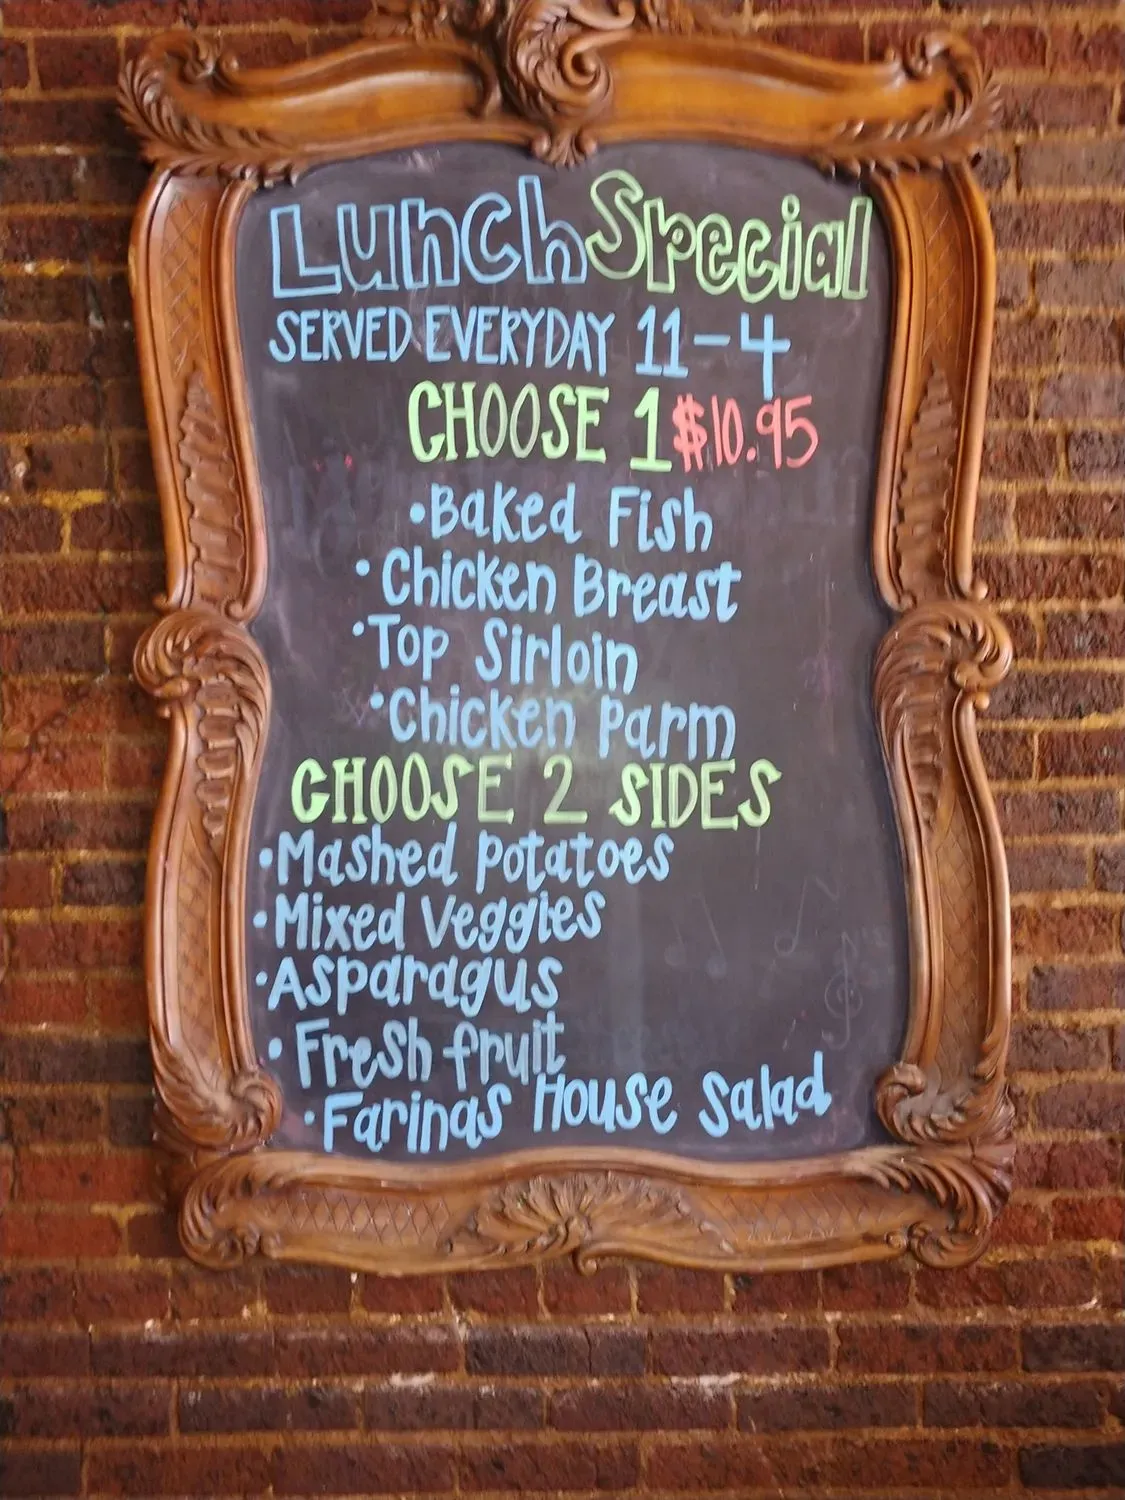 Lunch Special
SERVED EVERYDAY 11-4
CHOOSE 1 $10.95
• Baked Fish
• Chicken Breast
• Top Sirloin
• Chicken Parm
CHOOSE 2 SIDES
• Mashed Potatoes
• Mixed Veggies
• Asparagus
• Fresh fruit
• Farinas House Salad